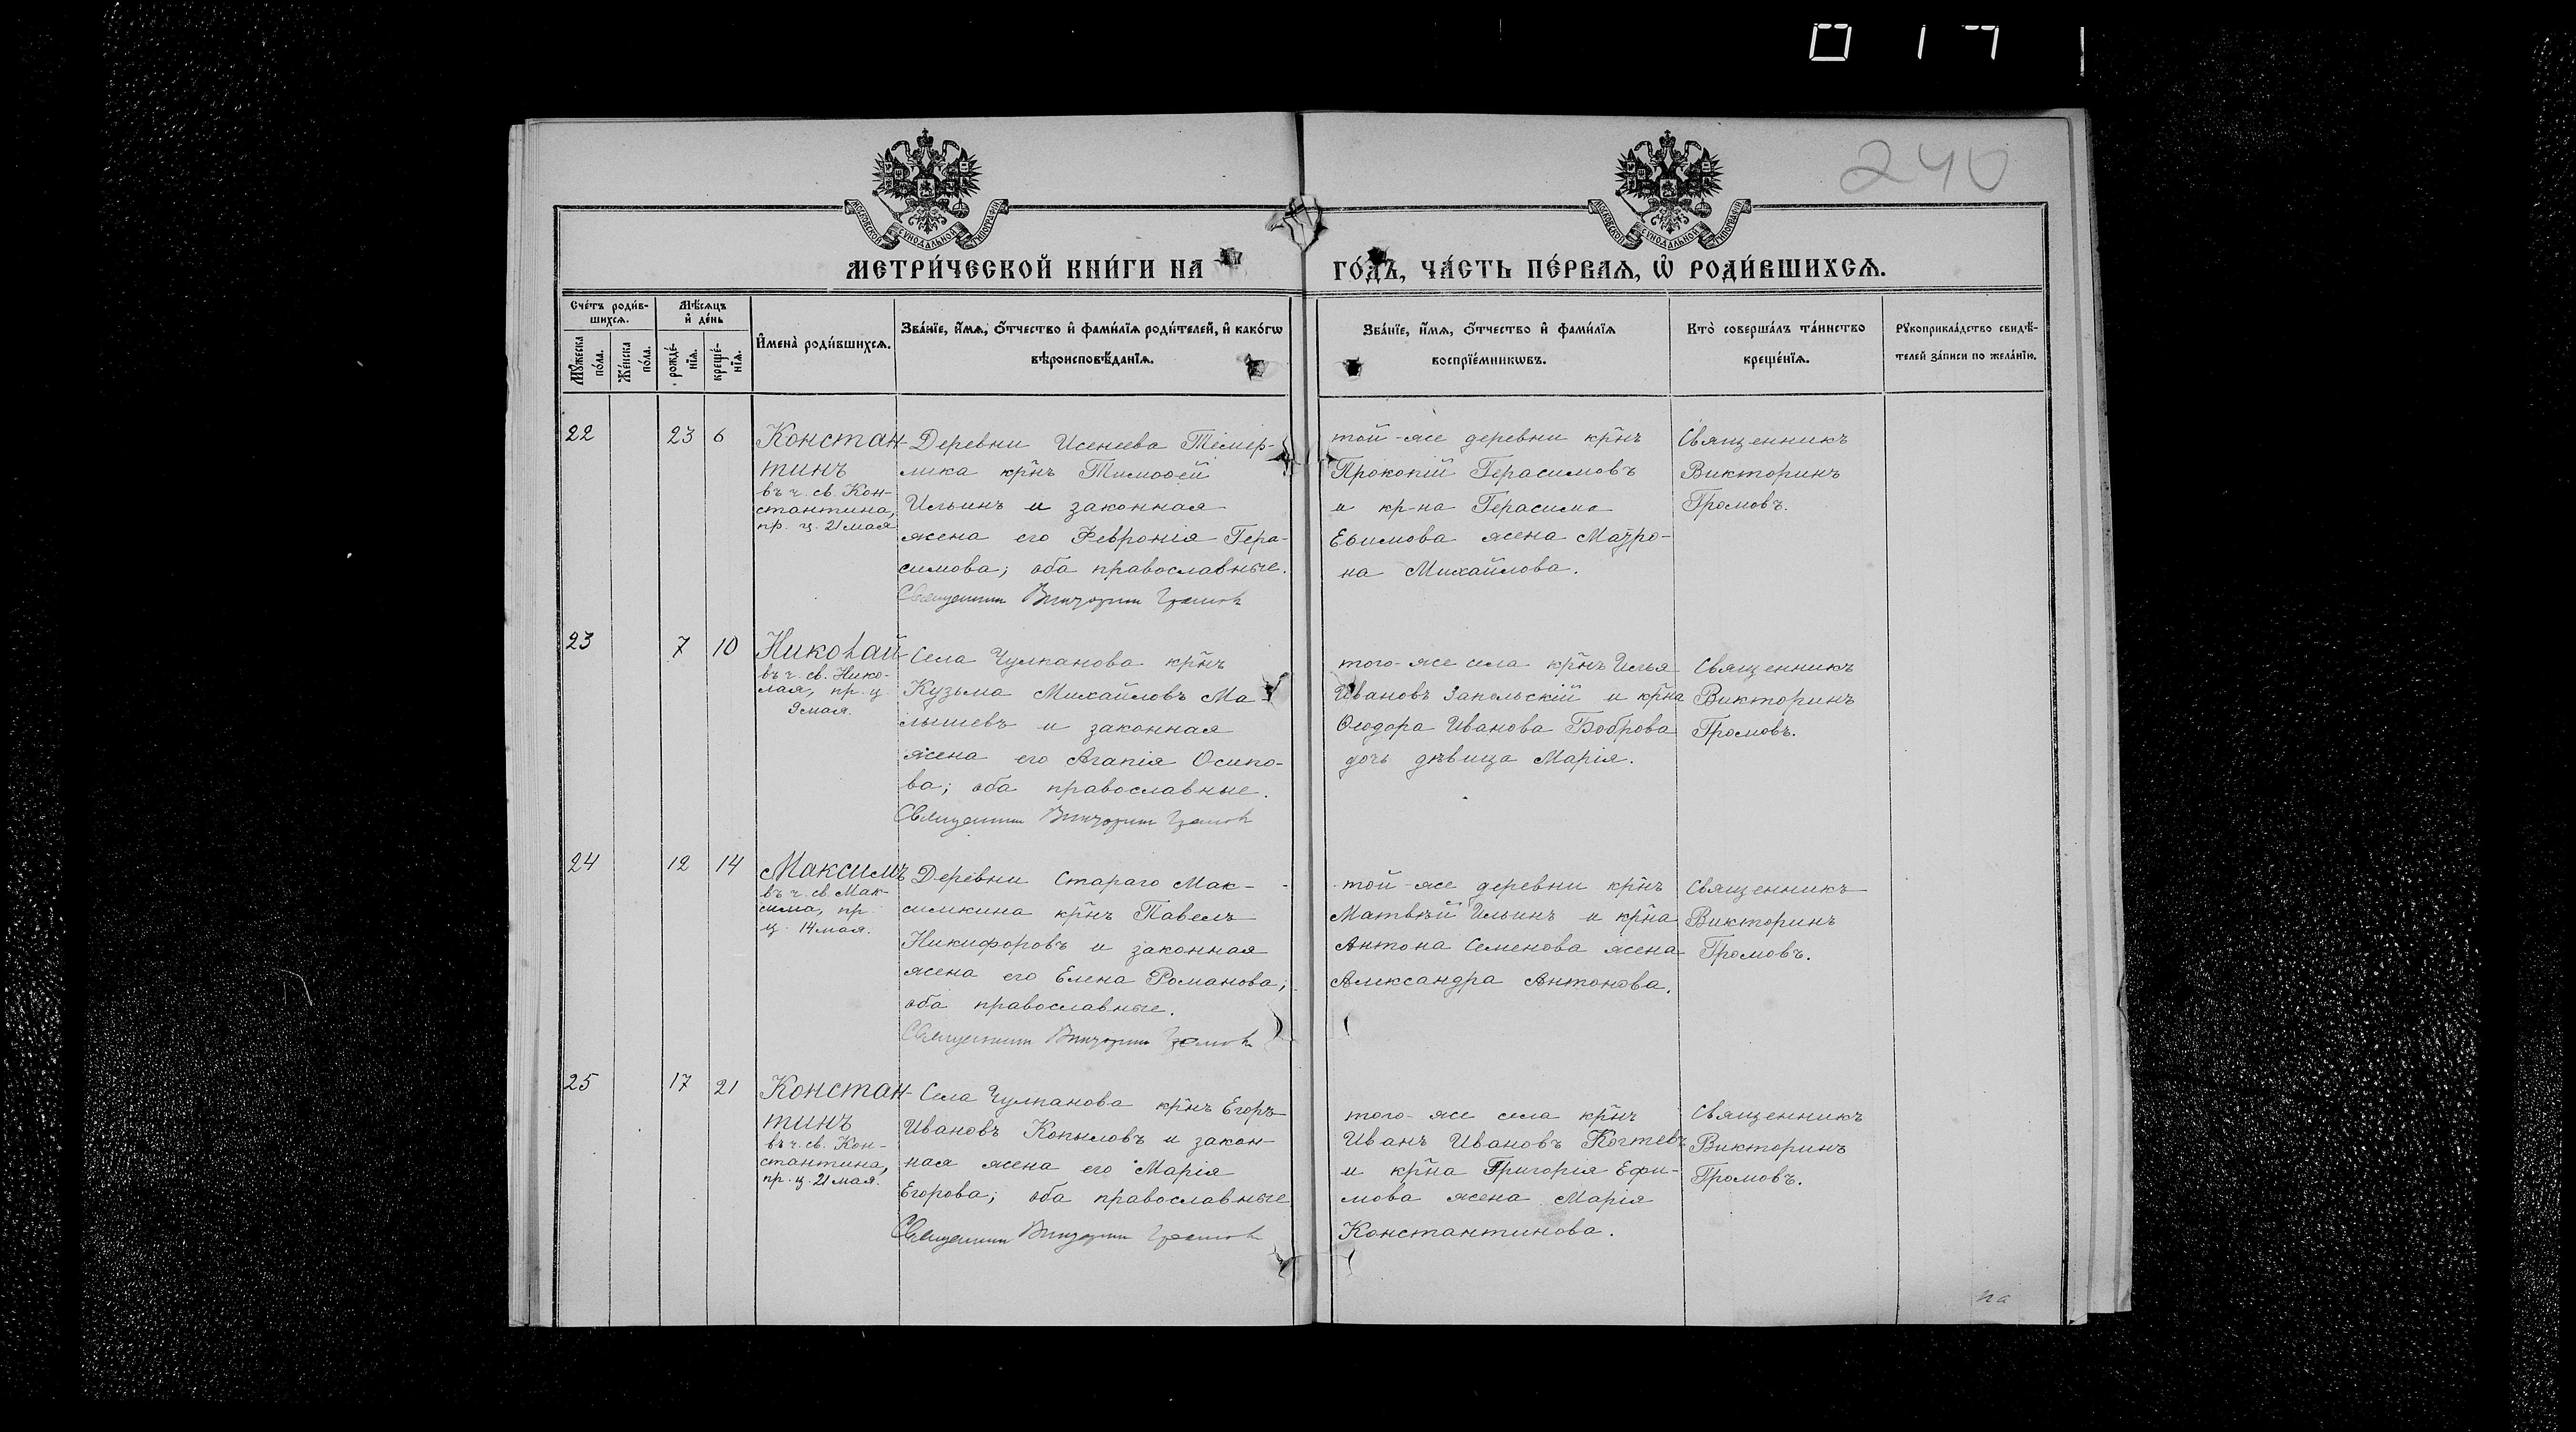 017
240
МОСКОВСКОЙ СѴНОДАЛЬНОЙ ТИПОГРАФІИ
МОСКОВСКОЙ СѴНОДАЛЬНОЙ ТИПОГРАФІИ
МЕТРИ́ЧЕСКОЙ КНИ́ГИ НА ГО́ДЪ, ЧА́СТЬ ПЕ́РВАѦ, Ѡ҆ РОДИ́ВШИХСѦ.
Сче́тъ роди́в-
шихсѧ.
Мѣ́сѧцъ
и҆ де́нь
Мꙋ́жеска
по́ла.
Же́нска
по́ла.
рожде́-
нїѧ.
креще́-
нїѧ.
И҆мена̀ роди́вшихсѧ.
Зва́нїе, и҆́мѧ, ѻ҆́тчество и҆ фами́лїѧ роди́телей, и҆ како́гѡ
вѣроисповѣ́данїѧ.
Зва́нїе, и҆́мѧ, ѻ҆́тчество и҆ фами́лїѧ
воспрїе́мникѡвъ.
Кто̀ соверша́лъ та́инство
креще́нїѧ.
Рꙋкоприкла́дство свидѣ́-
телей за́писи по жела́нїю.
22
23 6
Констан-
тинъ
въ ч. св. Кон-
стантина,
пр. ц. 21 мая
Деревни Исенеева Темер-
лика кр̃нъ Тимоѳей
Ильинъ и законная
жена его Февронія Гера-
симова; оба православные.
Священникъ Викторинъ Громовъ
той-же деревни кр̃нъ
Прокопій Герасимовъ
и кр-на Герасима
Евимова жена Матро-
на Михайлова.
Священникъ
Викторинъ
Громовъ.
23
7 10
Николай
въ ч. св. Нико-
лая, пр. ц.
9 мая.
Села Чулпанова кр̃нъ
Кузьма Михайловъ Ма-
лышевъ и законная
жена его Агапія Осипо-
ва; оба православные.
Священникъ Викторинъ Громовъ
того-же села кр̃нъ Илья
Ивановъ Запольскій и кр̃на
Ѳеодора Иванова Боброва
дочь дѣвица Марія.
Священникъ
Викторинъ
Громовъ.
24
12 14
Максимъ
въ ч. св. Мак-
сима, пр.
ц. 14 мая.
Деревни Стараго Мак-
симкина кр̃нъ Павелъ
Никифоровъ и законная
жена его Елена Романова;
оба православные.
Священникъ Викторинъ Громовъ
той-же деревни кр̃нъ
Матвѣй Ильинъ и кр̃на
Антона Семенова жена
Александра Антонова.
Священникъ
Викторинъ
Громовъ.
25
17 21
Констан-
тинъ
въ ч. св. Кон-
стантина,
пр. ц. 21 мая.
Села Чулпанова кр̃нъ Егоръ
Ивановъ Копыловъ и закон-
ная жена его Марія
Егорова; оба православные
Священникъ Викторинъ Громовъ
того-же села кр̃нъ
Иванъ Ивановъ Когтевъ
и кр̃на Григорія Ефи-
мова жена Марія
Константинова.
Священникъ
Викторинъ
Громовъ.
на